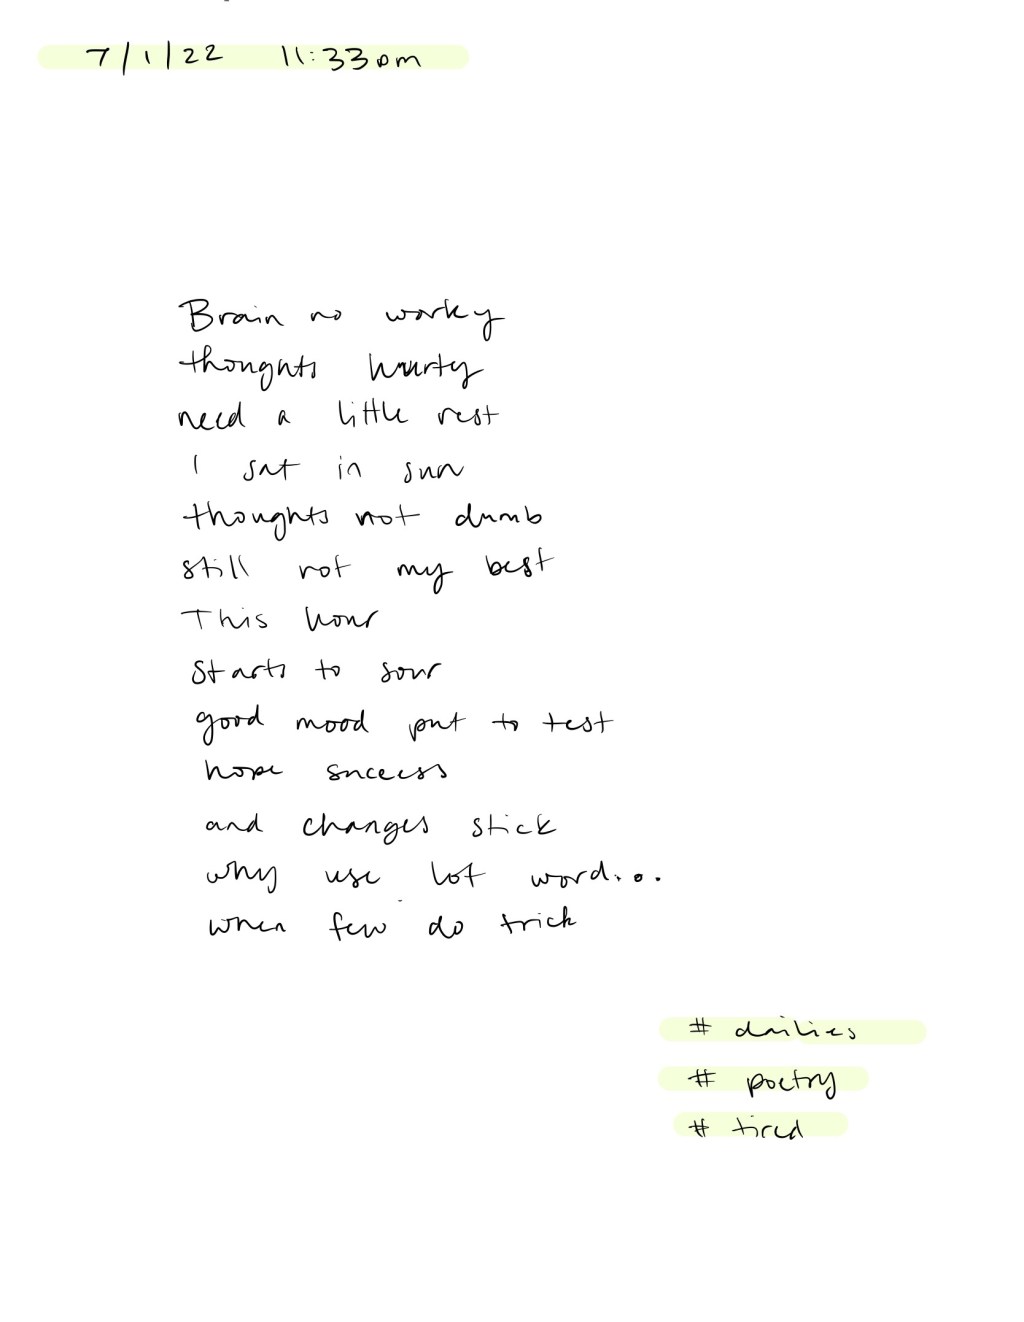 7/1/22 11:33pm
Brain no worky
thoughts hurty
need a little rest
I sat in sun
thoughts not dumb
still not my best
This hour
starts to sour
good mood put to test
hope success
and changes stick
why use lot word...
when few do trick
# dailies
# poetry
# tired